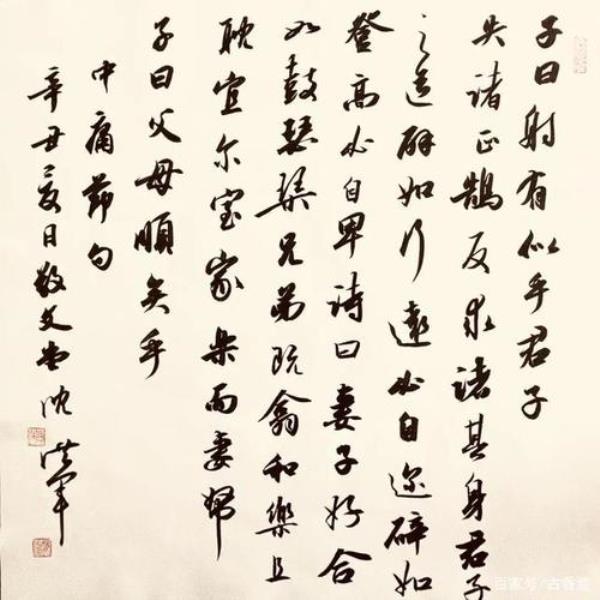 子曰射有似乎君子
失诸正鹄反求诸其身君子
之道辟如行遠必自迩辟如
登高必自卑诗曰妻子好合
如鼓瑟琴兄弟既翕和樂且
耽宜尔室家樂而妻帑
子曰父母順矣乎
中庸節句
辛丑夏日敬文堂沈洪军
百家号/古香